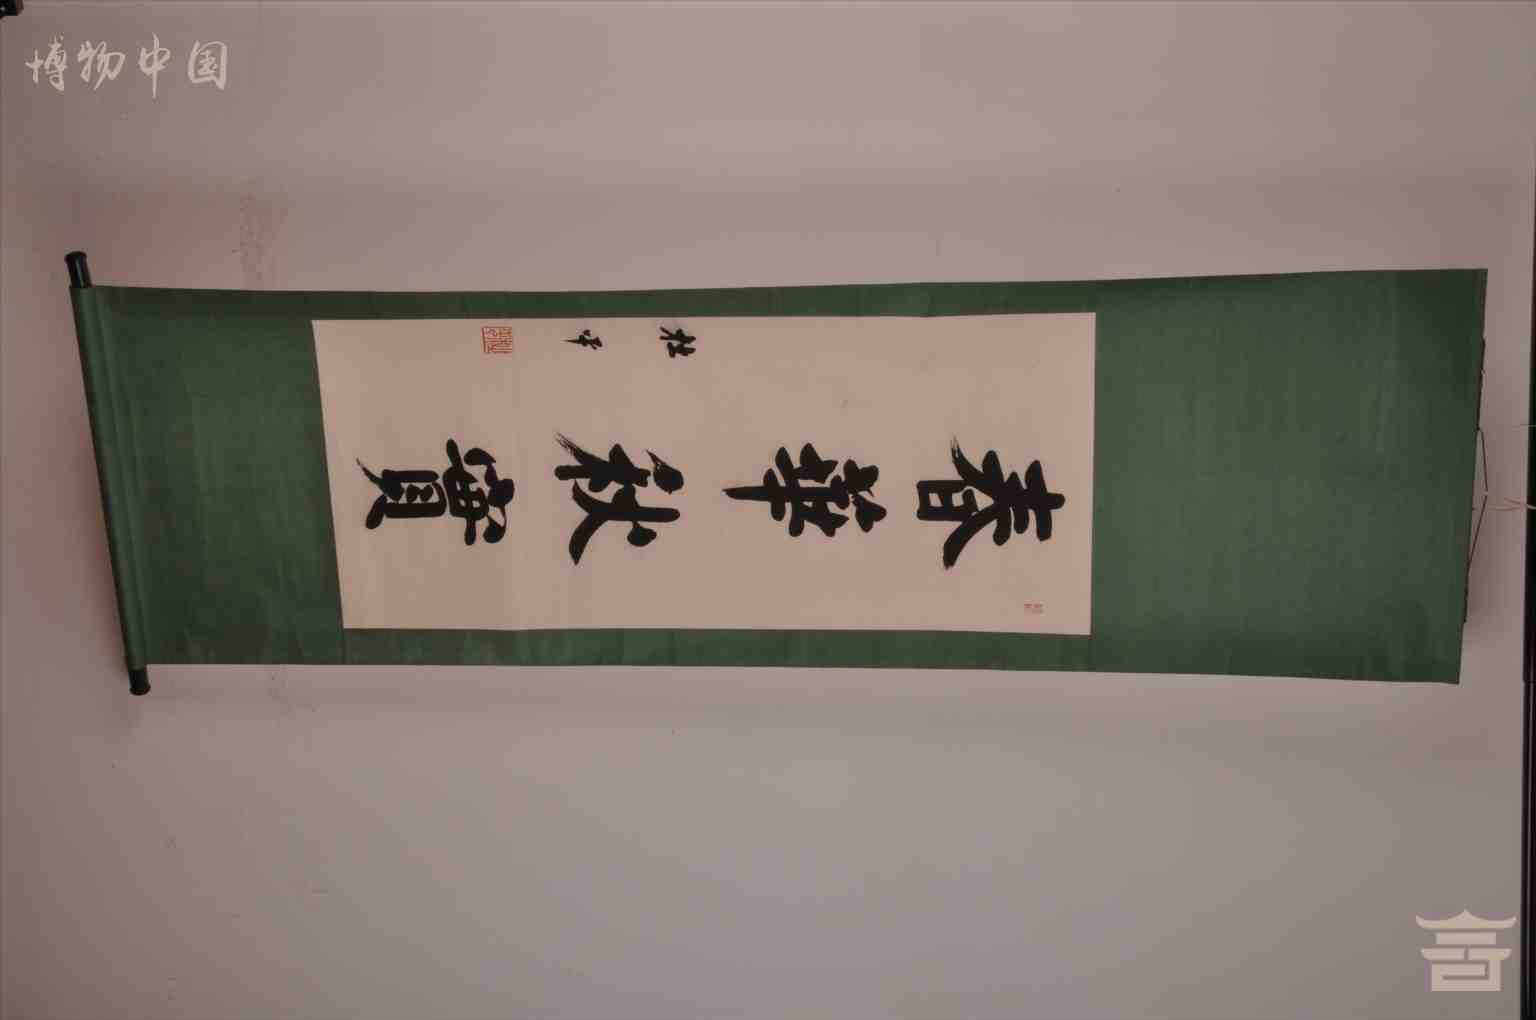 博物中国
春華秋實